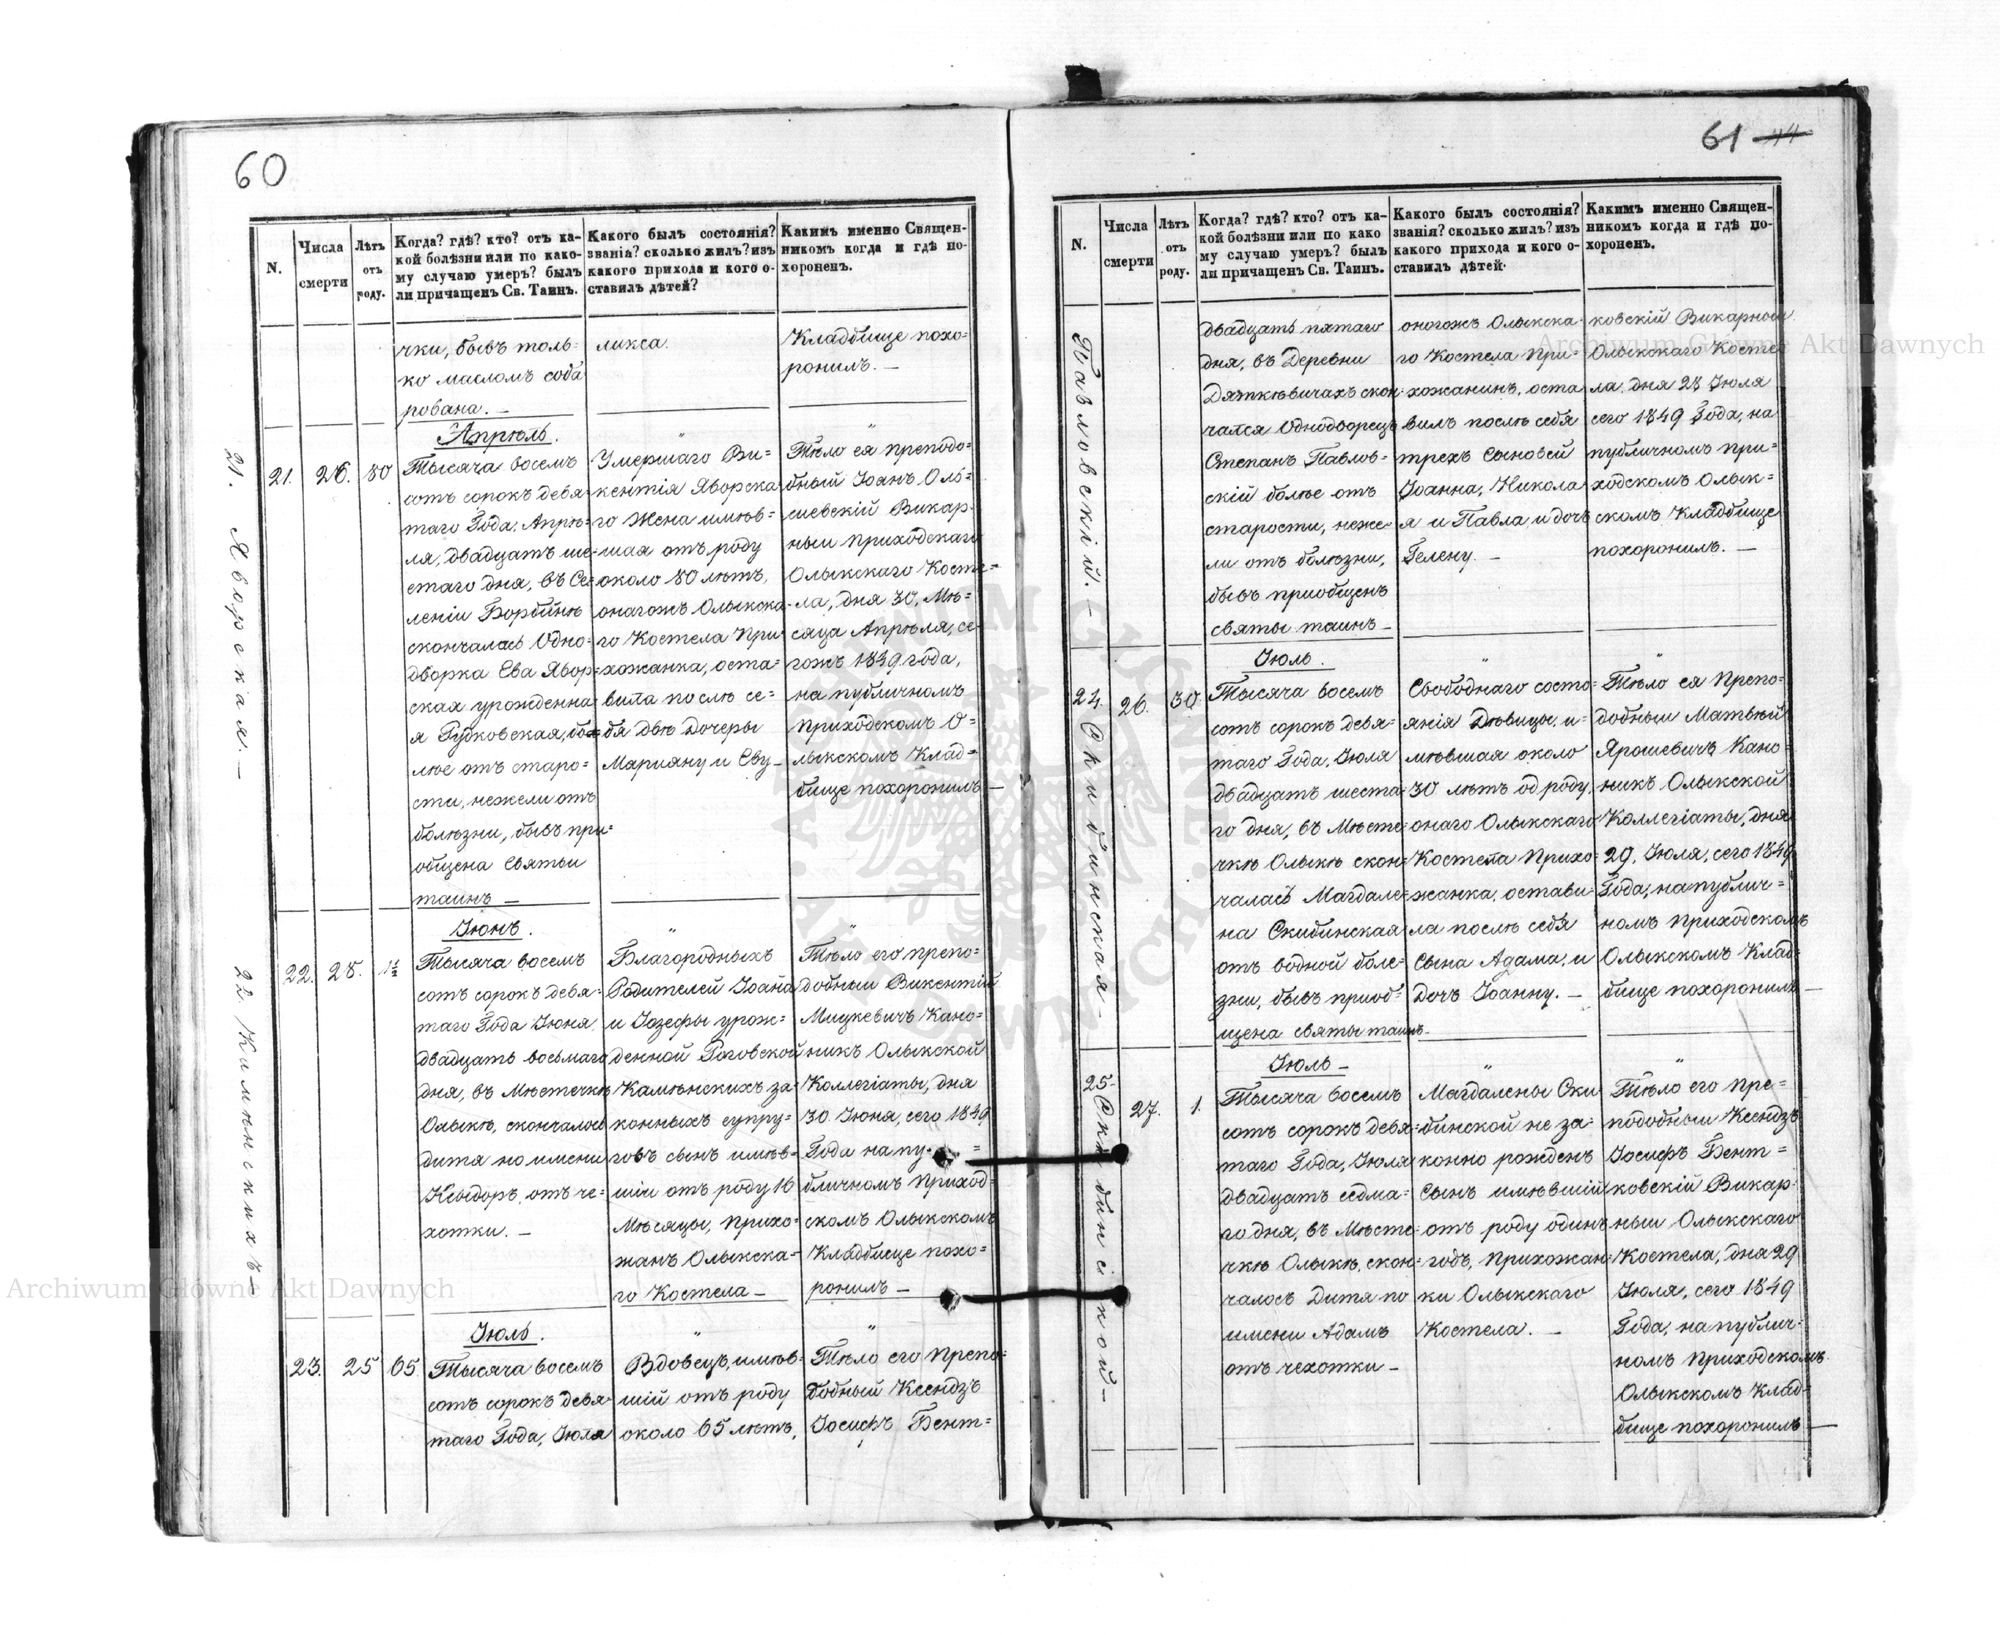 60
N.
Числа
смерти
Лѣтъ
отъ
роду.
Когда? гдѣ? кто? отъ ка-
кой болѣзни или по како-
му случаю умеръ? былъ
ли причащенъ Св. Таинъ.
Какого былъ состоянія?
званія? сколько жилъ? изъ
какого прихода и кого о-
ставилъ дѣтей?
Какимъ именно Священ-
никомъ когда и гдѣ по-
хороненъ.
чки, бывъ толь-
ко масломъ соба
рована. —
ликса.
Кладбище похо-
ронилъ. —
21. Яворская. —
21.
26.
80
Апрѣль.
Тысяча восемъ
сотъ сорокъ девя-
таго Года, Апрѣ-
ля, двадцать ше-
стаго дня, въ Се-
леніи Борбинѣ
скончалась Одно-
дворка Ева Явор-
ская урожденна-
я Губковская, бо-
лѣе отъ старо-
сти, нежели отъ
болѣзни, бывъ при-
общена Святыи
таинъ —
"
Умершаго Ви-
кентія Яворска
го Жена имѣв-
шая отъ роду
около 80 лѣтъ,
онагожъ Олыкска-
го Костела При-
хожанка, оста-
вила послѣ се-
бя двѣ Дочеры
Марияну и Еву —
"
Тѣло ея преподо-
бный Іоанъ Оль-
шевскій Викар-
ныи приходскаго
Олыкскаго Косте-
ла, дня 30, Мѣ-
сяца Апрѣля, се-
гожъ 1849 года,
на публичномъ
приходскомъ О-
лыкскомъ Клад-
бище похоронилъ —
22 Камѣнскихъ —
22.
28.
1½
Іюнъ.
Тысяча восемъ
сотъ сорокъ девя-
таго Года Іюня
двадцать восьмаго
дня, въ Мѣстечкѣ
Олыкѣ, скончалось
дитя по имени
Ксыдоръ, отъ че-
хотки. —
"
Благородныхъ
Родителей Іоана
и Іозефы урож-
денной Роговской
Камѣнскихъ за-
конныхъ супру-
говъ сынъ имѣв-
шіи отъ роду 16
Мѣсяцы, прихо-
жанъ Олыкска-
го Костела —
"
Тѣло его препо-
добныи Викентій
Мицкевичъ Кано-
никъ Олыкской
Коллегіаты, дня
30 Іюня, сего 1849
Года на пу-
бличномъ приход-
скомъ Олыкскомъ
Кладбисце похо-
ронилъ —
23.
25
65
Іюль.
Тысяча восемъ
сотъ сорокъ девя-
таго Года, Іюля
"
Вдовецъ, имѣв-
шій отъ роду
около 65 лѣтъ,
"
Тѣло его препо-
добный Ксендзъ
Іосифъ Бент-
61 44
N.
Числа
смерти
Лѣтъ
отъ
роду.
Когда? гдѣ? кто? отъ ка-
кой болѣзни или по како
му случаю умеръ? былъ
ли причащенъ Св. Таинъ.
Какого былъ состоянія?
званія? сколько жилъ? изъ
какого прихода и кого о-
ставилъ дѣтей.
Какимъ именно Священ-
никомъ когда и гдѣ по-
хороненъ.
Павловскій. —
двадцать пятаго
дня, въ Деревни
Дяткѣвичахъ скон-
чался Однодворецъ
Степанъ Павлов-
скій болѣе отъ
старости, неже-
ли отъ болѣзни,
бывъ приобщенъ
святы таинъ —
оногожъ Олыкска-
го Костела При-
хожанинъ, оста-
вилъ послѣ себя
трехъ Сыновей
Іоанна, Никола
я и Павла и дочь
Гелену. —
ковскій Викарныи
Олыкскаго Косте
ла, дня 28 Іюля
сего 1849 Года, на
публичномъ при-
ходскомъ Олык-
скомъ Кладбище
похоронилъ. —
24. Скибинская —
26.
30
Іюль.
Тысяча восемъ
сотъ сорокъ девя-
таго Года, Іюля
двадцать шеста-
го дня, въ Мѣсте-
чкѣ Олыкѣ скон-
чалась Магдале-
на Скибинская
отъ водной боле-
зни, бывъ приоб-
щена святы таинъ.
"
Свободнаго состо-
янія Дѣвицы, и-
мѣвшая около
30 лѣтъ од роду,
онаго Олыкскаго
Костела Прихо-
жанка, остави-
ла послѣ себя
Сына Адама, и
Дочъ Іоанну. —
"
Тѣло ея Препо-
добныи Матвѣй
Ярошевичъ Кано-
никъ Олыкской
Коллегіаты, дня
29, Іюля, сего 1849
Года, на публич-
номъ приходскомъ
Олыкскомъ Клад-
бище похоронилъ —
25. Скибинской —
27.
1.
Іюль —
Тысяча восемъ
сотъ сорокъ девя-
таго Года, Іюля
двадцать седма-
го дня, въ Мѣсте-
чкѣ Олыкѣ, скон-
чалось Дитя по
имени Адамъ
отъ чехотки —
"
Магдалены Ски-
бинской не за-
конно рожденъ
Сынъ имѣвшій
отъ роду одинъ
годъ, Прихожан-
ки Олыкскаго
Костела. —
"
Тѣло его пре-
подобныи Ксендзъ
Іосифъ Бент-
ковскій Викар-
ныи Олыкскаго
Костела, дня 29
Іюля, сего 1849
Года, на публич-
номъ приходскомъ
Олыкскомъ клад-
бище похоронилъ —
Archiwum Główne Akt Dawnych
Archiwum Główne Akt Dawnych